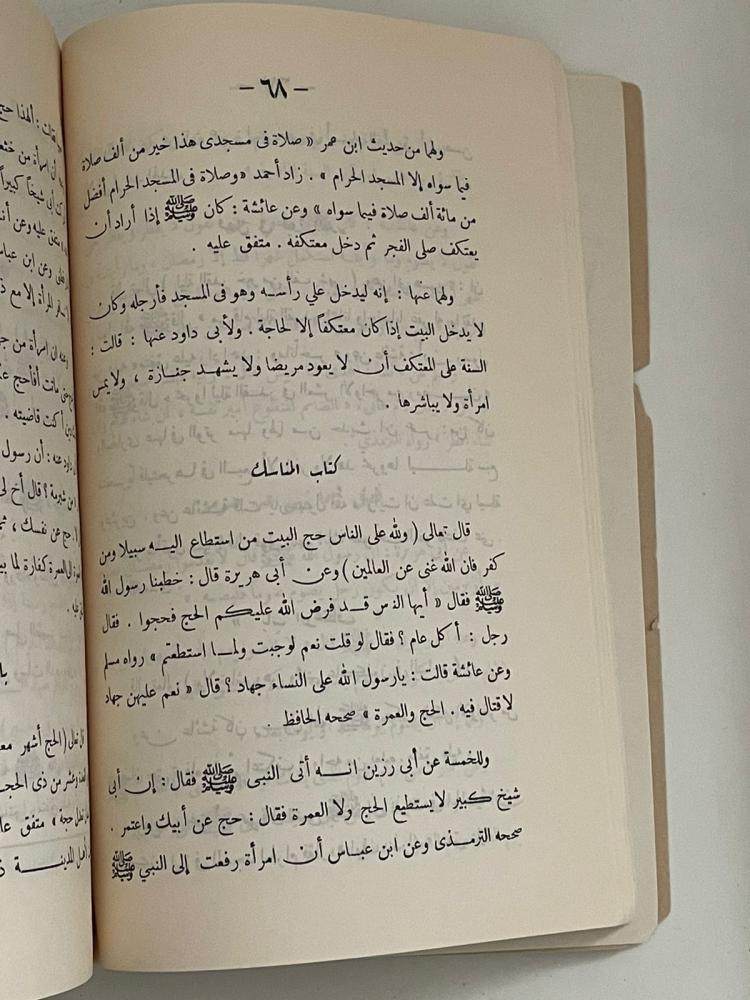 – ٦٨ –
ولهما من حديث ابن عمر « صلاة فى مسجدى هذا خير من ألف صلاة
فيما سواه إلا المسجد الحرام » . زاد أحمد «وصلاة فى المسجد الحرام أفضل
من مائة ألف صلاة فيما سواه » وعن عائشة : كان ﷺ إذا أراد أن
يعتكف صلى الفجر ثم دخل معتكفه . متفق عليه .
ولهما عنها : إنه ليدخل علي رأسه وهو فى المسجد فأرجله وكان
لا يدخل البيت إذا كان معتكفاً إلا لحاجة . ولأبى داود عنها : قالت :
السنة على المعتكف أن لا يعود مريضا ولا يشهد جنازة ، ولا يمس
امرأة ولا يباشرها .
كتاب المناسك
قال تعالى ( ولله على الناس حج البيت من استطاع اليه سبيلا ومن
كفر فان الله غنى عن العالمين ) وعن أبى هريرة قال : خطبنا رسول الله
ﷺ فقال « أيها الناس قد فرض الله عليكم الحج فحجوا . فقال
رجل : أكل عام ؟ فقال لو قلت نعم لوجبت ولما استطعتم » رواه مسلم
وعن عائشة قالت : يارسول الله على النساء جهاد ؟ قال « نعم عليهن جهاد
لا قتال فيه . الحج والعمرة » صححه الحافظ .
وللخمسة عن أبى رزين انه أتى النبى ﷺ فقال : إن أبى
شيخ كبير لا يستطيع الحج ولا العمرة فقال : حج عن أبيك واعتمر .
صححه الترمذى وعن ابن عباس أن امرأة رفعت إلى النبي ﷺ